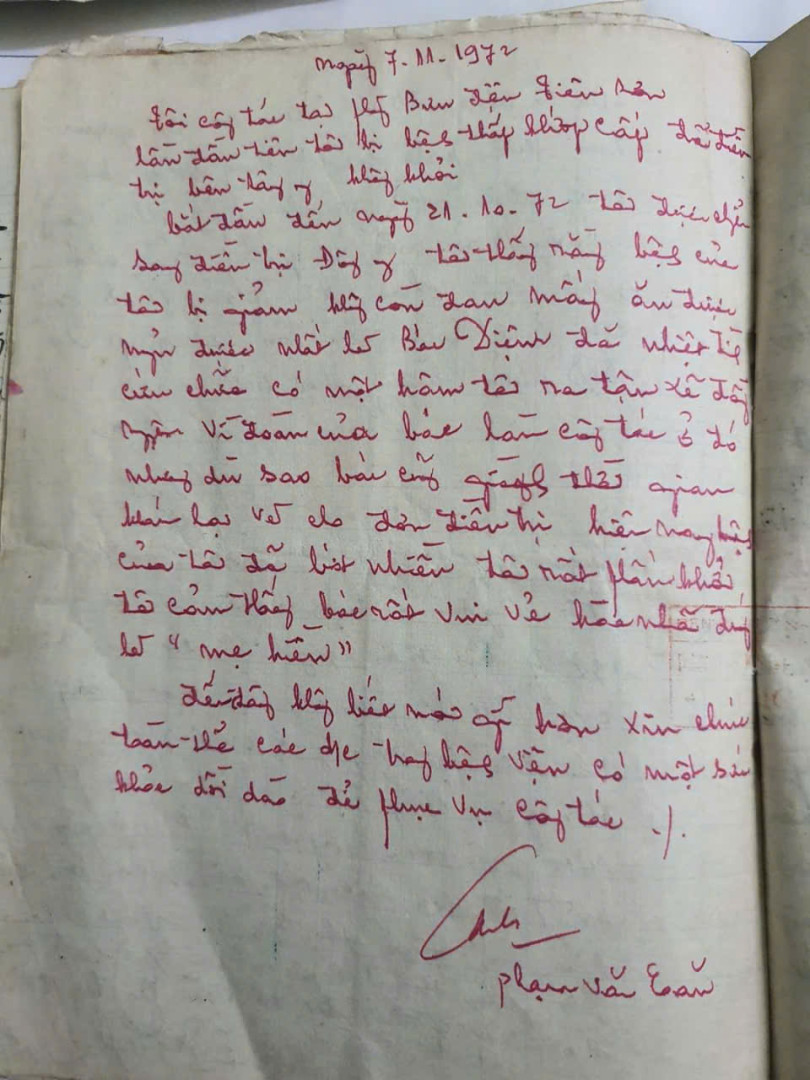 ngày 7-11-1972
Tôi công tác tại phòng Bưu điện Tiên Sơn
lần đầu tiên tôi bị bệnh thấp khớp cấp đã điều
trị bên tây y không khỏi
bắt đầu đến ngày 21-10-72 tôi được chuyển
sang điều trị Đông y tôi thấy rằng bệnh của
tôi bị giảm không còn đau mấy ăn được
ngủ được nhất là Bác Diệm đã nhiệt tình
cứu chữa có một hôm tôi ra tận xã Đồng
Nguyên vì đoàn của bác làm công tác ở đó
nhưng dù sao bác cũng thời gian
khám lại và cho đơn điều trị hiện nay bệnh
của tôi đã bớt nhiều tôi rất phấn khởi
tôi cảm thấy bác rất vui vẻ hòa nhã đúng
là "mẹ hiền"
đến đây không biết nói gì hơn xin chúc
toàn thể các đ/c trong bệnh viện có một sức
khỏe dồi dào để phục vụ công tác ./.
Phạm Văn